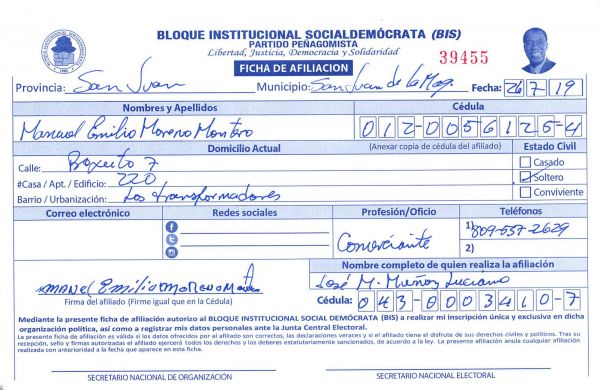 BLOQUE INSTITUCIONAL SOCIALDEMÓCRATA (BIS)
PARTIDO PEÑAGOMISTA
Libertad, Justicia, Democracia y Solidaridad
39455
FICHA DE AFILIACION
Provincia: San Juan Municipio: San Juan de la Mag. Fecha: 26 7 19
Nombres y Apellidos Cédula
Manuel Emilio Moreno Montero 012-0056125-4
Domicilio Actual (Anexar copia de cédula del afiliado) Estado Civil
Calle: 7 Casado
#Casa / Apt. / Edificio: 220 Soltero
Barrio / Urbanización: Los transformadores Conviviente
Correo electrónico Redes sociales Profesión/Oficio Teléfonos
Comerciante 1) 809-557-2629
2)
Nombre completo de quien realiza la afiliación
Manel Emilio Moreno José M. Muñoz Luciano
Firma del afiliado (Firme igual que en la Cédula) Cédula: 043-0003410-7
Mediante la presente ficha de afiliación autorizo al BLOQUE INSTITUCIONAL SOCIAL DEMÓCRATA (BIS) a realizar mi inscripción única y exclusiva en dicha
organización política, así como a registrar mis datos personales ante la Junta Central Electoral.
La presente ficha de afiliación es válida si los datos ofrecidos por el afiliado son correctos, las declaraciones veraces y si el afiliado tiene el disfrute de sus derechos civiles y políticos. Tras su
recepción, sello y firmas autorizadas el afiliado ejercerá todos los derechos y los deberes estatutariamente sancionados, de acuerdo a la ley. La presente afiliación anula cualquier afiliación
realizada con anterioridad a la fecha que aparece en esta ficha.
SECRETARIO NACIONAL DE ORGANIZACIÓN SECRETARIO NACIONAL ELECTORAL